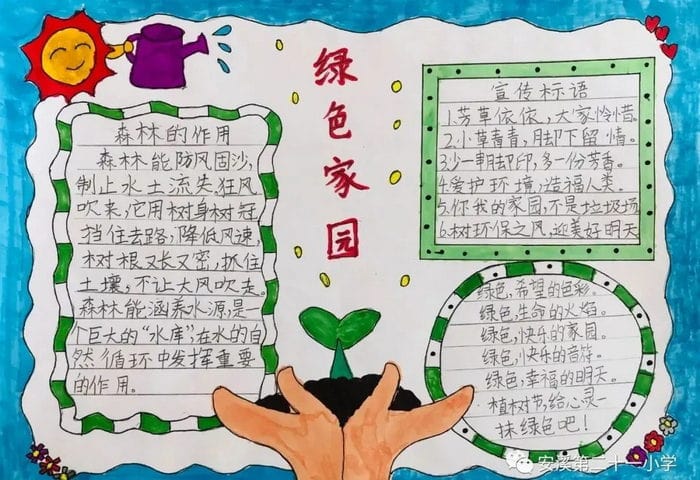 绿色家园
森林的作用
森林能防风固沙,
制止水土流失.狂风
吹来,它用树身树冠
挡住去路,降低风速,
树根又长又密,抓住
土壤,不让大风吹走。
森林能涵养水源,是
个巨大的“水库”,在水的自
然循环中发挥重要
的作用。
宣传标语
1.芳草依依,大家怜惜。
2.小草青青,脚下留情。
3.少一串脚印,多一份芳香。
4.爱护环境,造福人类。
5.你我的家园,不是垃圾场
6.树环保之风,迎美好明天
绿色,希望的色彩。
绿色,生命的火焰。
绿色,快乐的家园。
绿色,快乐的音符。
绿色,幸福的明天。
植树节,给心灵一
抹绿色吧!
安溪第二十一小学